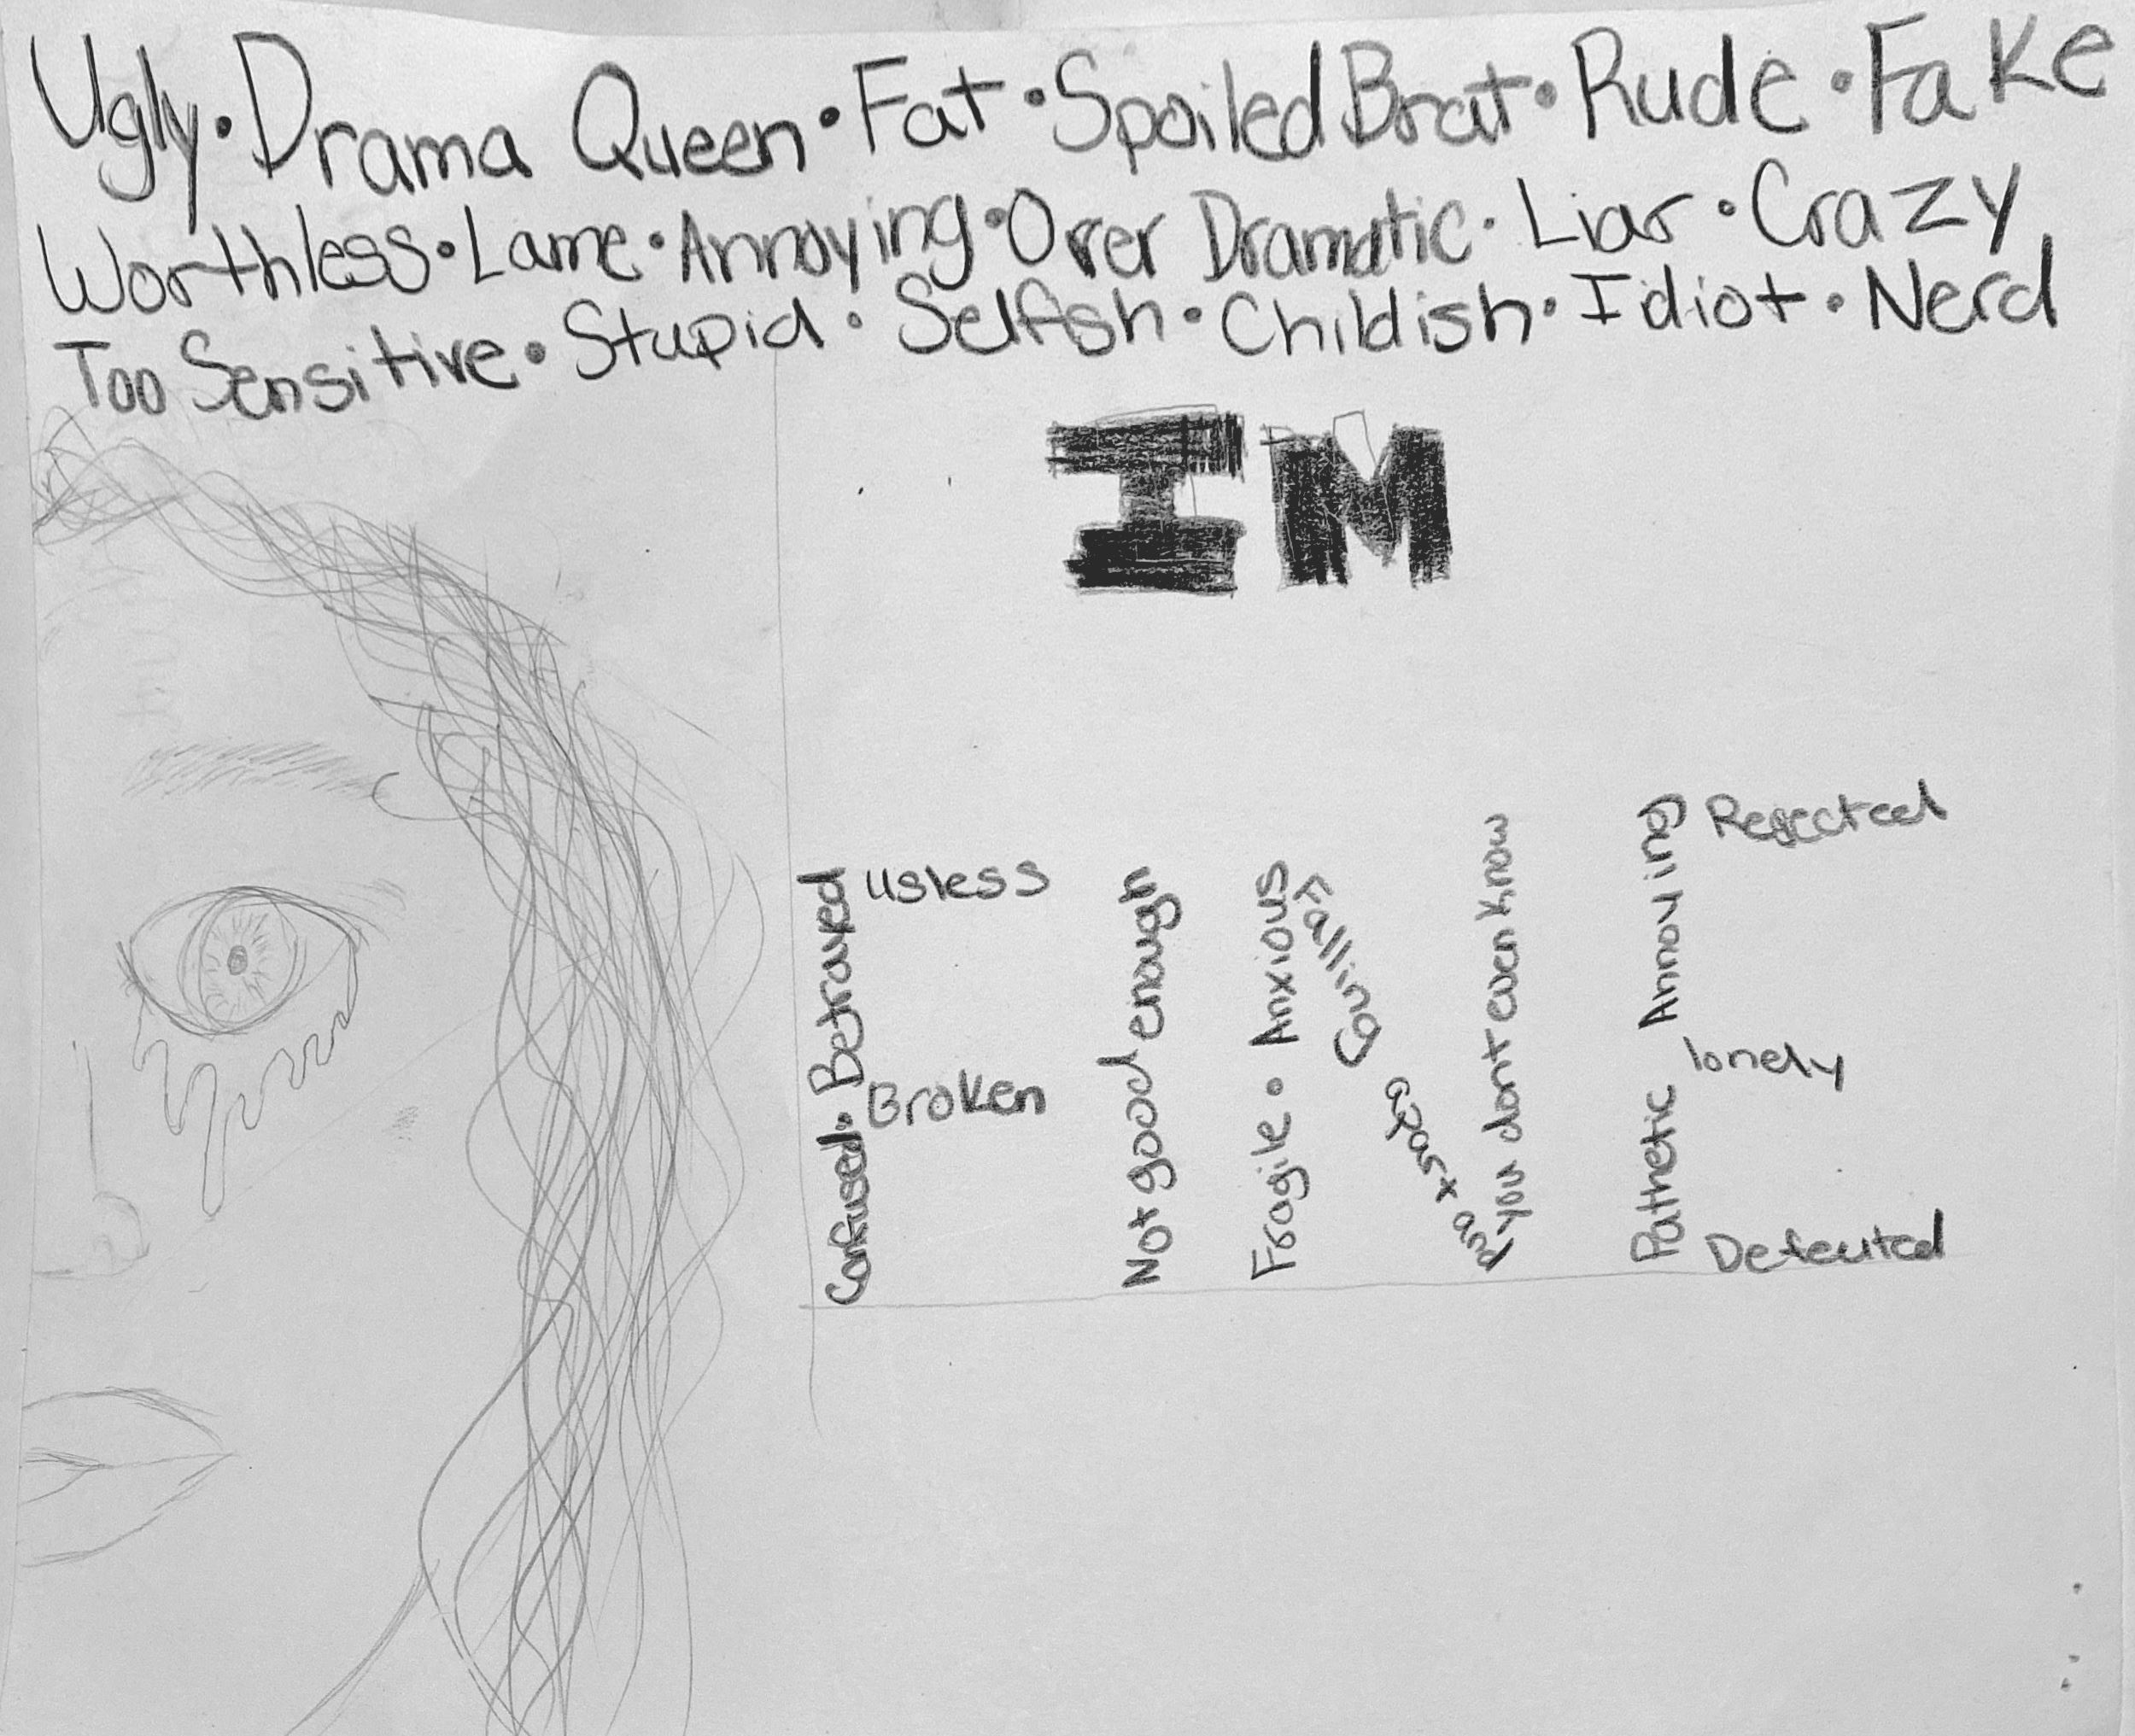 Ugly • Drama Queen • Fat • Spoiled Brat • Rude • Fake
Worthless • Lame • Annoying • Over Dramatic • Liar • Crazy
Too Sensitive • Stupid • Selfish • Childish • Idiot • Nerd
IM
Confused. Betrayed
usless
Broken
Not good enough
Fragile • Anxious
Falling apart and
you dont even know
Pathetic Annoying
Regected
lonely
Defeated